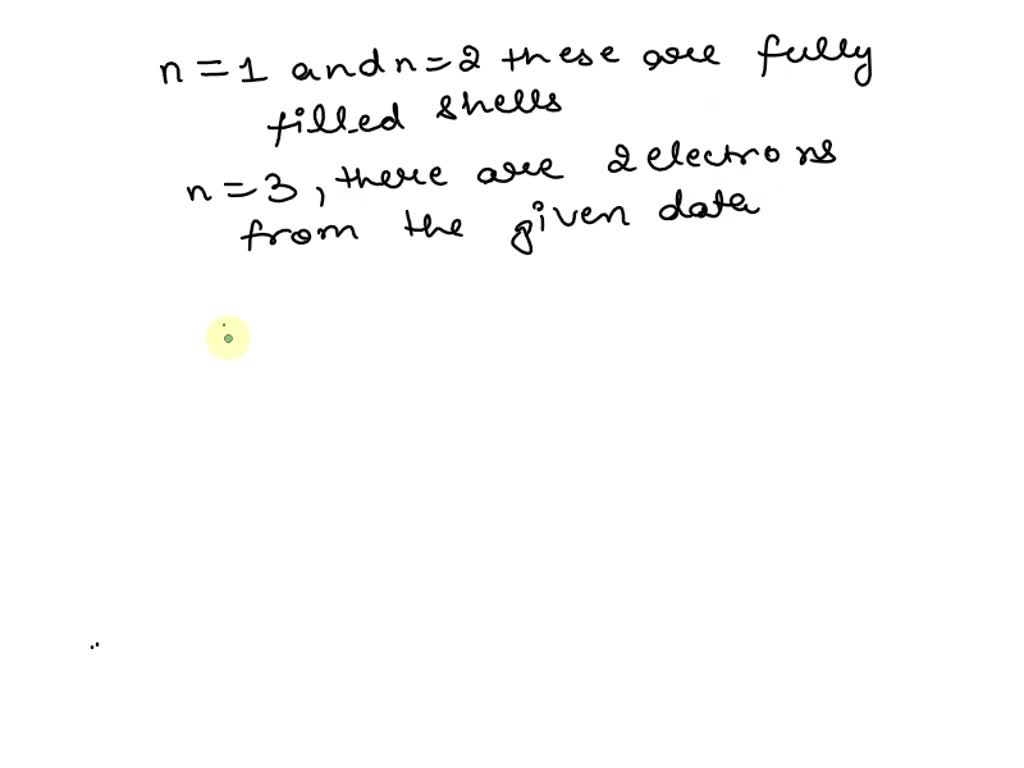 n = 1 and n = 2 these are fully
filled shells
n = 3, there are 2 electrons
from the given data